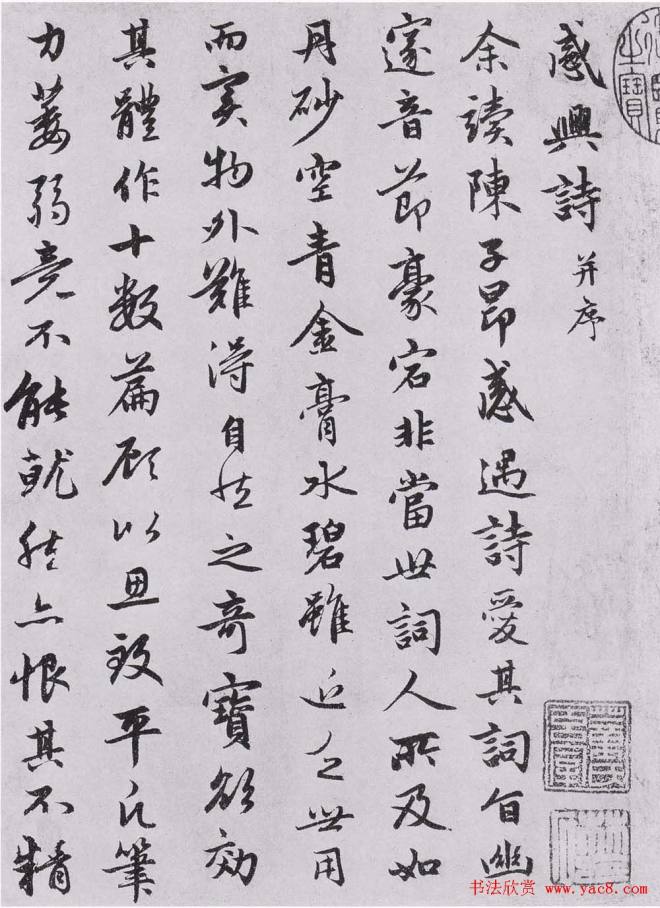 感興詩 并序
余讀陳子昂感遇詩愛其詞旨幽
邃音節豪宕非當世詞人所及如
丹砂空青金膏水碧雖近乏世用
而實物外難得自然之奇寶欲効
其體作十數篇顧以思致平凡筆
力萎弱竟不能就然亦恨其不精
之寶
书法欣赏 www.yac8.com